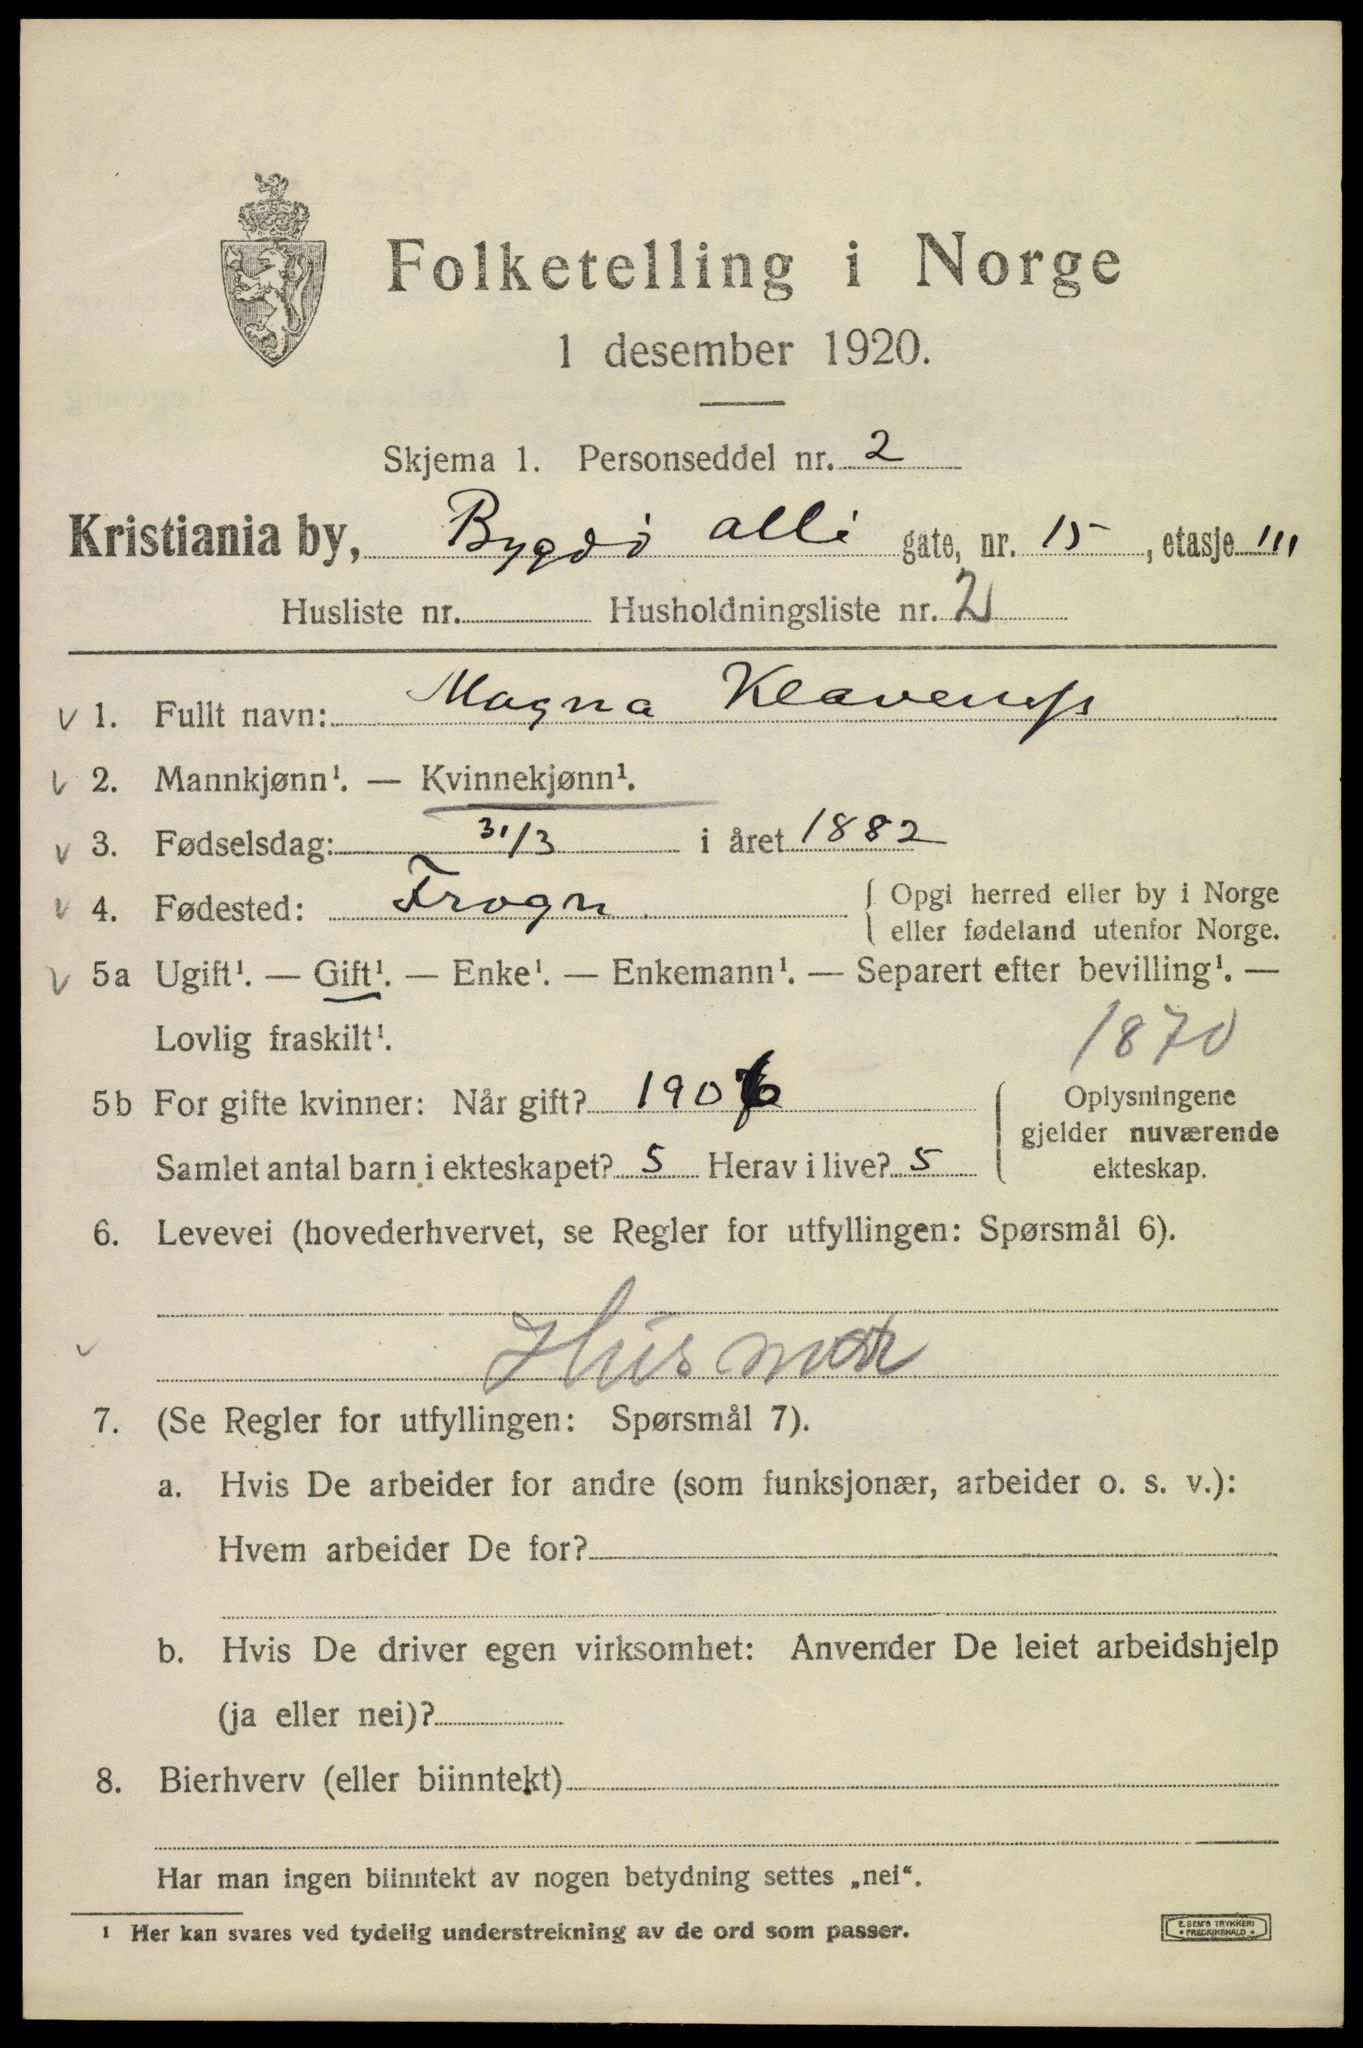 Folketelling i Norge
1 desember 1920.
Skjema 1. Personseddel nr. 2
Kristiania by, Bygdö alle gate, nr. 15, etasje III
Husliste nr. Husholdningsliste nr. 2
1. Fullt navn: Magna Klaveness
2. Mannkjønn¹. — Kvinnekjønn¹.
3. Fødselsdag: 31/3 i året 1882
4. Fødested: Frogn { Opgi herred eller by i Norge
eller fødeland utenfor Norge.
5a Ugift¹. — Gift¹. — Enke¹. — Enkemann¹. — Separert efter bevilling¹. —
Lovlig fraskilt¹.
1870
5b For gifte kvinner: Når gift? 1906
Samlet antal barn i ekteskapet? 5 Herav i live? 5
Oplysningene
gjelder nuværende
ekteskap.
6. Levevei (hovederhvervet, se Regler for utfyllingen: Spørsmål 6).
Husmor
7. (Se Regler for utfyllingen: Spørsmål 7).
a. Hvis De arbeider for andre (som funksjonær, arbeider o. s. v.):
Hvem arbeider De for?
b. Hvis De driver egen virksomhet: Anvender De leiet arbeidshjelp
(ja eller nei)?
8. Bierhverv (eller biinntekt)
Har man ingen biinntekt av nogen betydning settes „nei“.
¹ Her kan svares ved tydelig understrekning av de ord som passer.
E. SEM'S TRYKKERI
• FREDRIKSHALD •